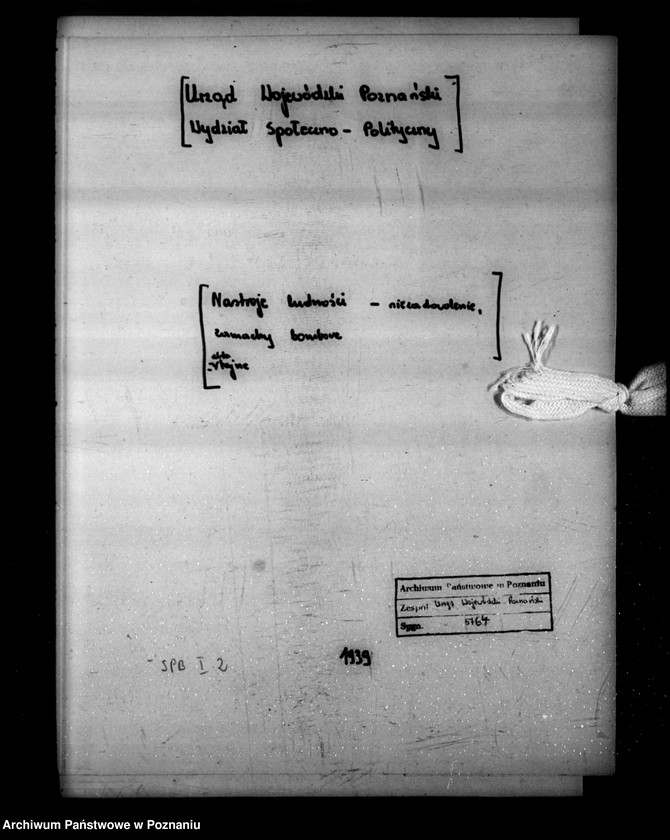 Urząd Wojewódzki Poznański
Wydział Społeczno - Polityczny
Nastroje ludności - niezadowolenie,
zamachy bombowe
akta
tajne
Archiwum Państwowe w Poznaniu
Zespół Urząd Wojewódzki Poznański
Sygn. 5764
1939
SPB I 2
Archiwum Państwowe w Poznaniu